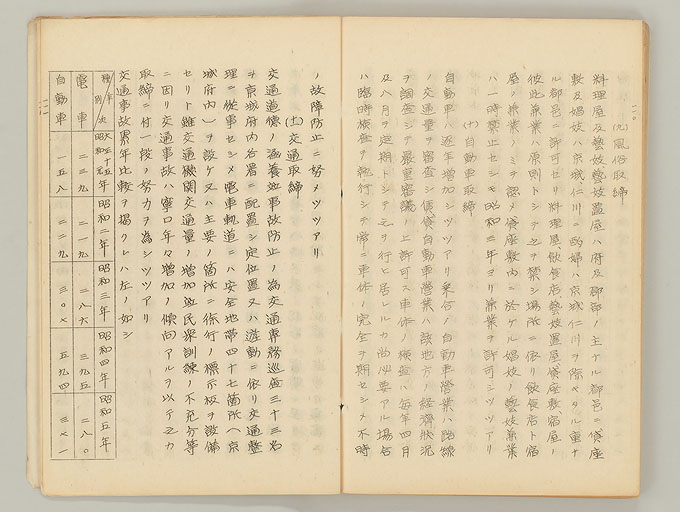 二〇
(九)風俗取締
料理屋及藝妓藝妓置屋ハ府及郡部ノ主ナル郡邑ニ貸座
敷及娼妓ハ京城仁川ニ酌婦ハ京城仁川ヲ除ク外重ナ
ル郡邑ニ許可セリ料理屋、飲食店、藝妓置屋貸座敷、宿屋ノ
彼此兼業ハ原則トシテ之ヲ禁シ場所ニ依リ飲食店ト宿
屋ノ兼業ノミヲ認メ貸座敷内ニ於ケル娼妓ノ藝妓兼業
ハ一時禁止セシモ昭和三年ヨリ兼業ヲ許可シツツアリ
(十)自動車取締
自動車ハ逐年増加シツツアリ乗合ノ自動車營業ハ路線
ノ交通量ヲ審査シ賃貸自動車營業ハ該地方ノ經濟狀況
ヲ調査シテ嚴重審議ノ上許可ス車体ノ檢査ハ毎年四月
及八月ヲ定期トシテ之ヲ行ヒ居レルカ尚必要アル場合
ハ臨時檢査ヲ執行シテ常ニ車体ノ完全ヲ期セシメ不時
ノ故障防止ニ努メツツアリ
(十一)交通取締
交通道德ノ涵養並事故防止ノ為交通專務巡査三十三名
ヲ京城府内各署ニ配置シ定位置又ハ遊動ニ依リ交通整
理ニ從事セシメ電車軌道ニハ安全地帶四十七箇所(京
城府内)ヲ設ケ又ハ主要ノ箇所ニ徐行ノ標示板ヲ設備
セリト雖交通機關交通量ノ増加並民衆訓練ノ不充分等
ニ因リ交通事故ハ寧ロ年々増加ノ傾向アルヲ以テ之カ
取締ニ付一段ノ努力ヲ為シツツアリ
交通事故累年比較ヲ掲クレハ左ノ如シ
種別 年次 大正十五年昭和元年 昭和二年 昭和三年 昭和四年 昭和五年
電車 二三九 二一九 二八六 三九五 二八〇
自動車 一五八 二二九 三〇× 五九四 三×一